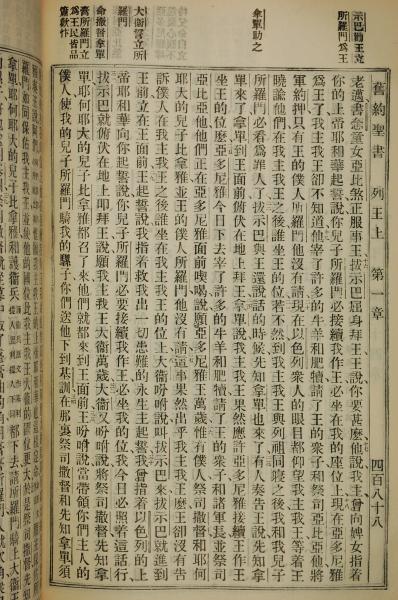 示巴勸王立
所羅門爲王
拿單助之
大衞誓立所
羅門
命撒督拿單
膏所羅門立
爲王民皆品
簫歡忭
舊約聖書 列王上 第 章 四百八十八
老邁書念童女亞比煞正服事王拔示巴屈身拜王王說你要甚麼他說我主曾向婢女指着
你的上帝耶和華起誓說你兒子所羅門必接續我作王必坐在我的座位上現在亞多尼雅
爲王了我主我王卻不知道他宰了許多的牛羊和肥犢請了王的衆子和祭司亞比亞他將
軍約押只有王的僕人所羅門他沒有請現在以色列衆人的眼目都仰望我主我王等着王
曉諭他們在我主我王之後誰坐王的位若不然到我主我王與列祖同寢之後我和我兒子
所羅門必看爲罪人了拔示巴與王還說話的時候先知拿單也來了有人奏告王說先知拿
單來了拿單到王面前俯伏在地上拜王拿單說我主我王果然應許亞多尼雅接續王作王
坐王的位麼亞多尼雅今日下去宰了許多的牛羊和肥犢請了王的衆子和諸軍長並祭司
亞比亞他他們正在亞多尼雅面前喫喝說願亞多尼雅王萬歲惟有僕人祭司撒督和耶何
耶大的兒子比拿雅並王的僕人所羅門他沒有請這事果然出乎我主我王麼王卻沒有告
訴僕人在我主我王之後誰坐我主我王的位上大衞吩咐說叫拔示巴來拔示巴就進到
王前立在王面前王起誓說我指着救我出一切患難的永生主起誓我曾指着以色列的上
帝耶和華向你起誓說你兒子所羅門必要接續我作王必坐我的位我今日必照着這話行
拔示巴就俯伏在地上叩拜王說願我主我王大衞萬歲大衞又吩咐說將祭司撒督先知拿
單耶何耶大的兒子比拿雅都召了來他們就都來到王面前王吩咐說當帶領你們主人的
僕人使我的兒子所羅門騎我的騾子你們送他下到基訓在那裏祭司撒督和先知拿單須